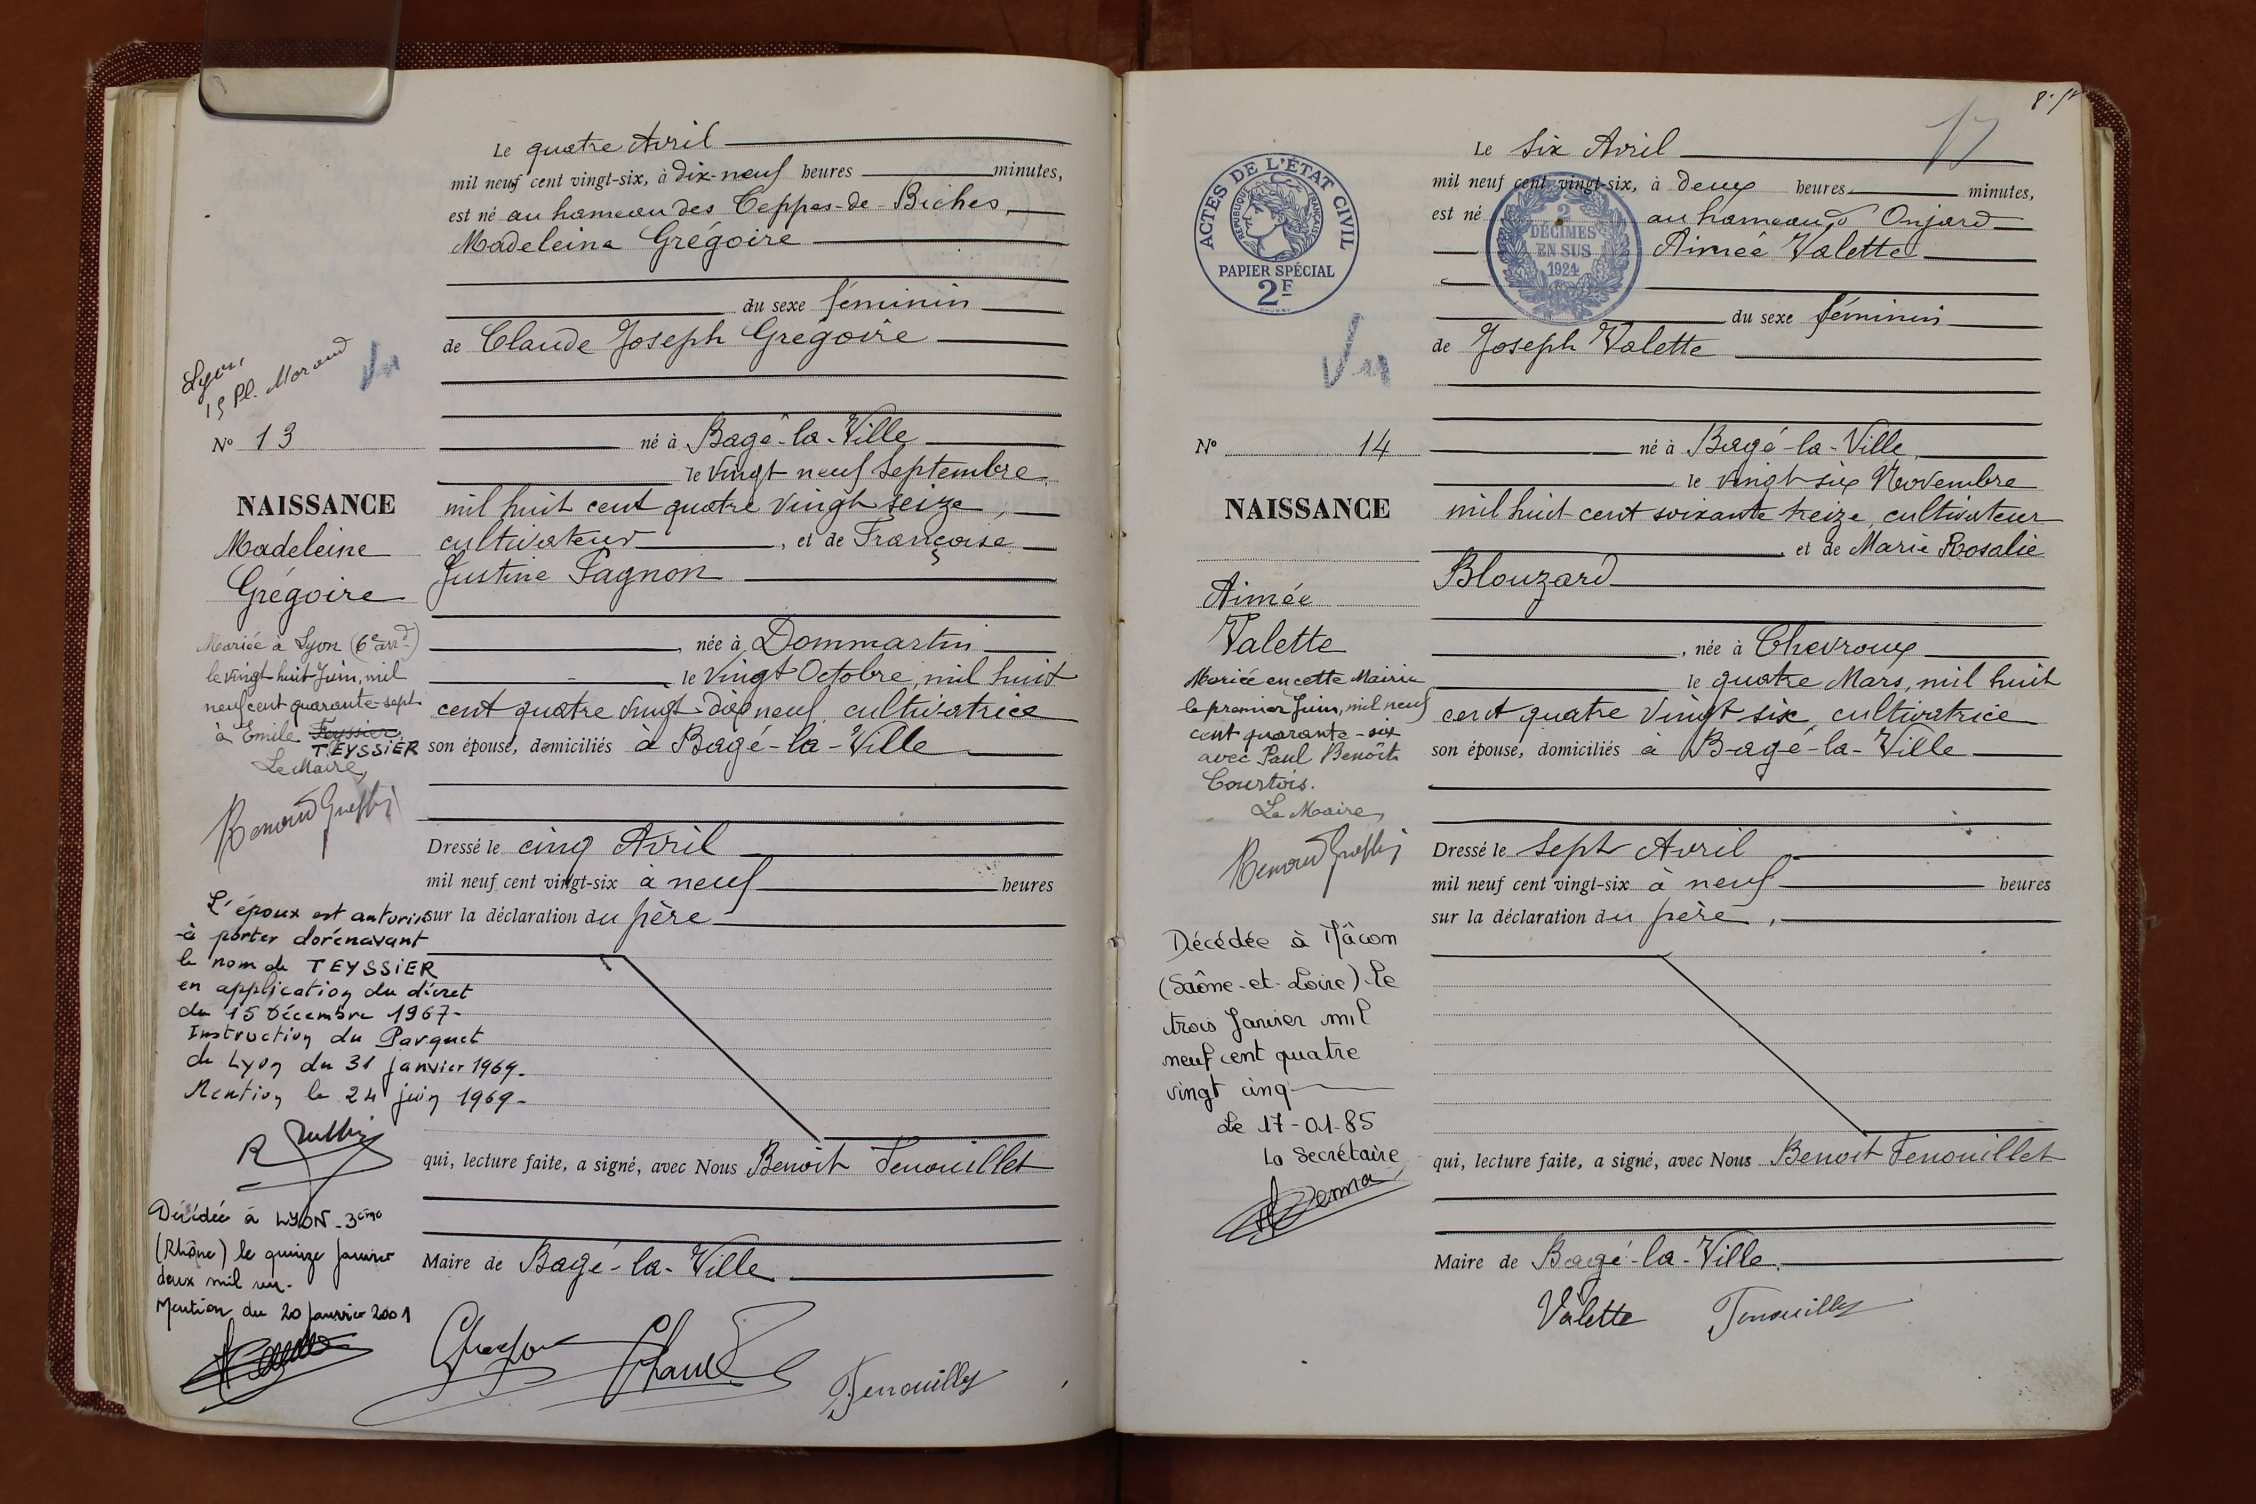 Le quatre Avril
mil neuf cent vingt-six, à dix-neuf heures minutes,
est né au hameau des Teppes-de-Biches,
Madeleine Grégoire
du sexe féminin
de Claude Joseph Grégoire
Lyon,
15 Pl. Morand
Vu
N° 13
né à Bagé-la-Ville
le vingt neuf Septembre
NAISSANCE
mil huit cent quatre vingt seize,
Madeleine
cultivateur, et de Françoise
Grégoire
Justine Pagnon
Mariée à Lyon (6e arrd)
le vingt huit Juin, mil
neuf cent quarante-sept
à Emile Feyssier
TEYSSIER
Le Maire,
née à Dommartin
le vingt Octobre, mil huit
cent quatre vingt-dix neuf, cultivatrice
son épouse, domiciliés à Bagé-la-Ville
Dressé le cinq Avril
mil neuf cent vingt-six à neuf heures
sur la déclaration du père
L'époux est autorisé
à porter dorénavant
le nom de TEYSSIER
en application du décret
du 15 Décembre 1967-
Instruction du Parquet
de Lyon du 31 janvier 1969-
Mention le 24 juin 1969-
qui, lecture faite, a signé, avec Nous Benoit Fenouillet
Décédée à LYON-3ème
(Rhône) le quinze Janvier
deux mil un-
Mention du 20 Janvier 2001
Maire de Bagé-la-Ville
Fenouillet
8.
17
ACTES DE L'ÉTAT CIVIL
RÉPUBLIQUE FRANÇAISE
PAPIER SPÉCIAL
2F
2
DÉCIMES
EN SUS
1924
Le six Avril
mil neuf cent vingt-six, à deux heures minutes,
est né au hameau d'Onjard
Aimée Valette
du sexe féminin
de Joseph Valette
Vu
N° 14
né à Bagé-la-Ville,
le vingt six Novembre
NAISSANCE
mil huit cent soixante treize, cultivateur
, et de Marie Rosalie
Aimée
Blouzard
Valette
Mariée en cette Mairie
le premier Juin, mil neuf
cent quarante-six
avec Paul Benoît
Courtois.
Le Maire,
, née à Chevroux
le quatre Mars, mil huit
cent quatre vingt six, cultivatrice
son épouse, domiciliés à Bagé-la-Ville
Dressé le sept Avril
mil neuf cent vingt-six à neuf heures
sur la déclaration du père,
Décédée à Mâcon
(Saône-et-Loire) le
trois Janvier mil
neuf cent quatre
vingt cinq
Le 17-01-85
La Secrétaire
qui, lecture faite, a signé, avec Nous Benoit Fenouillet
Maire de Bagé-la-Ville.
Valette Fenouillet